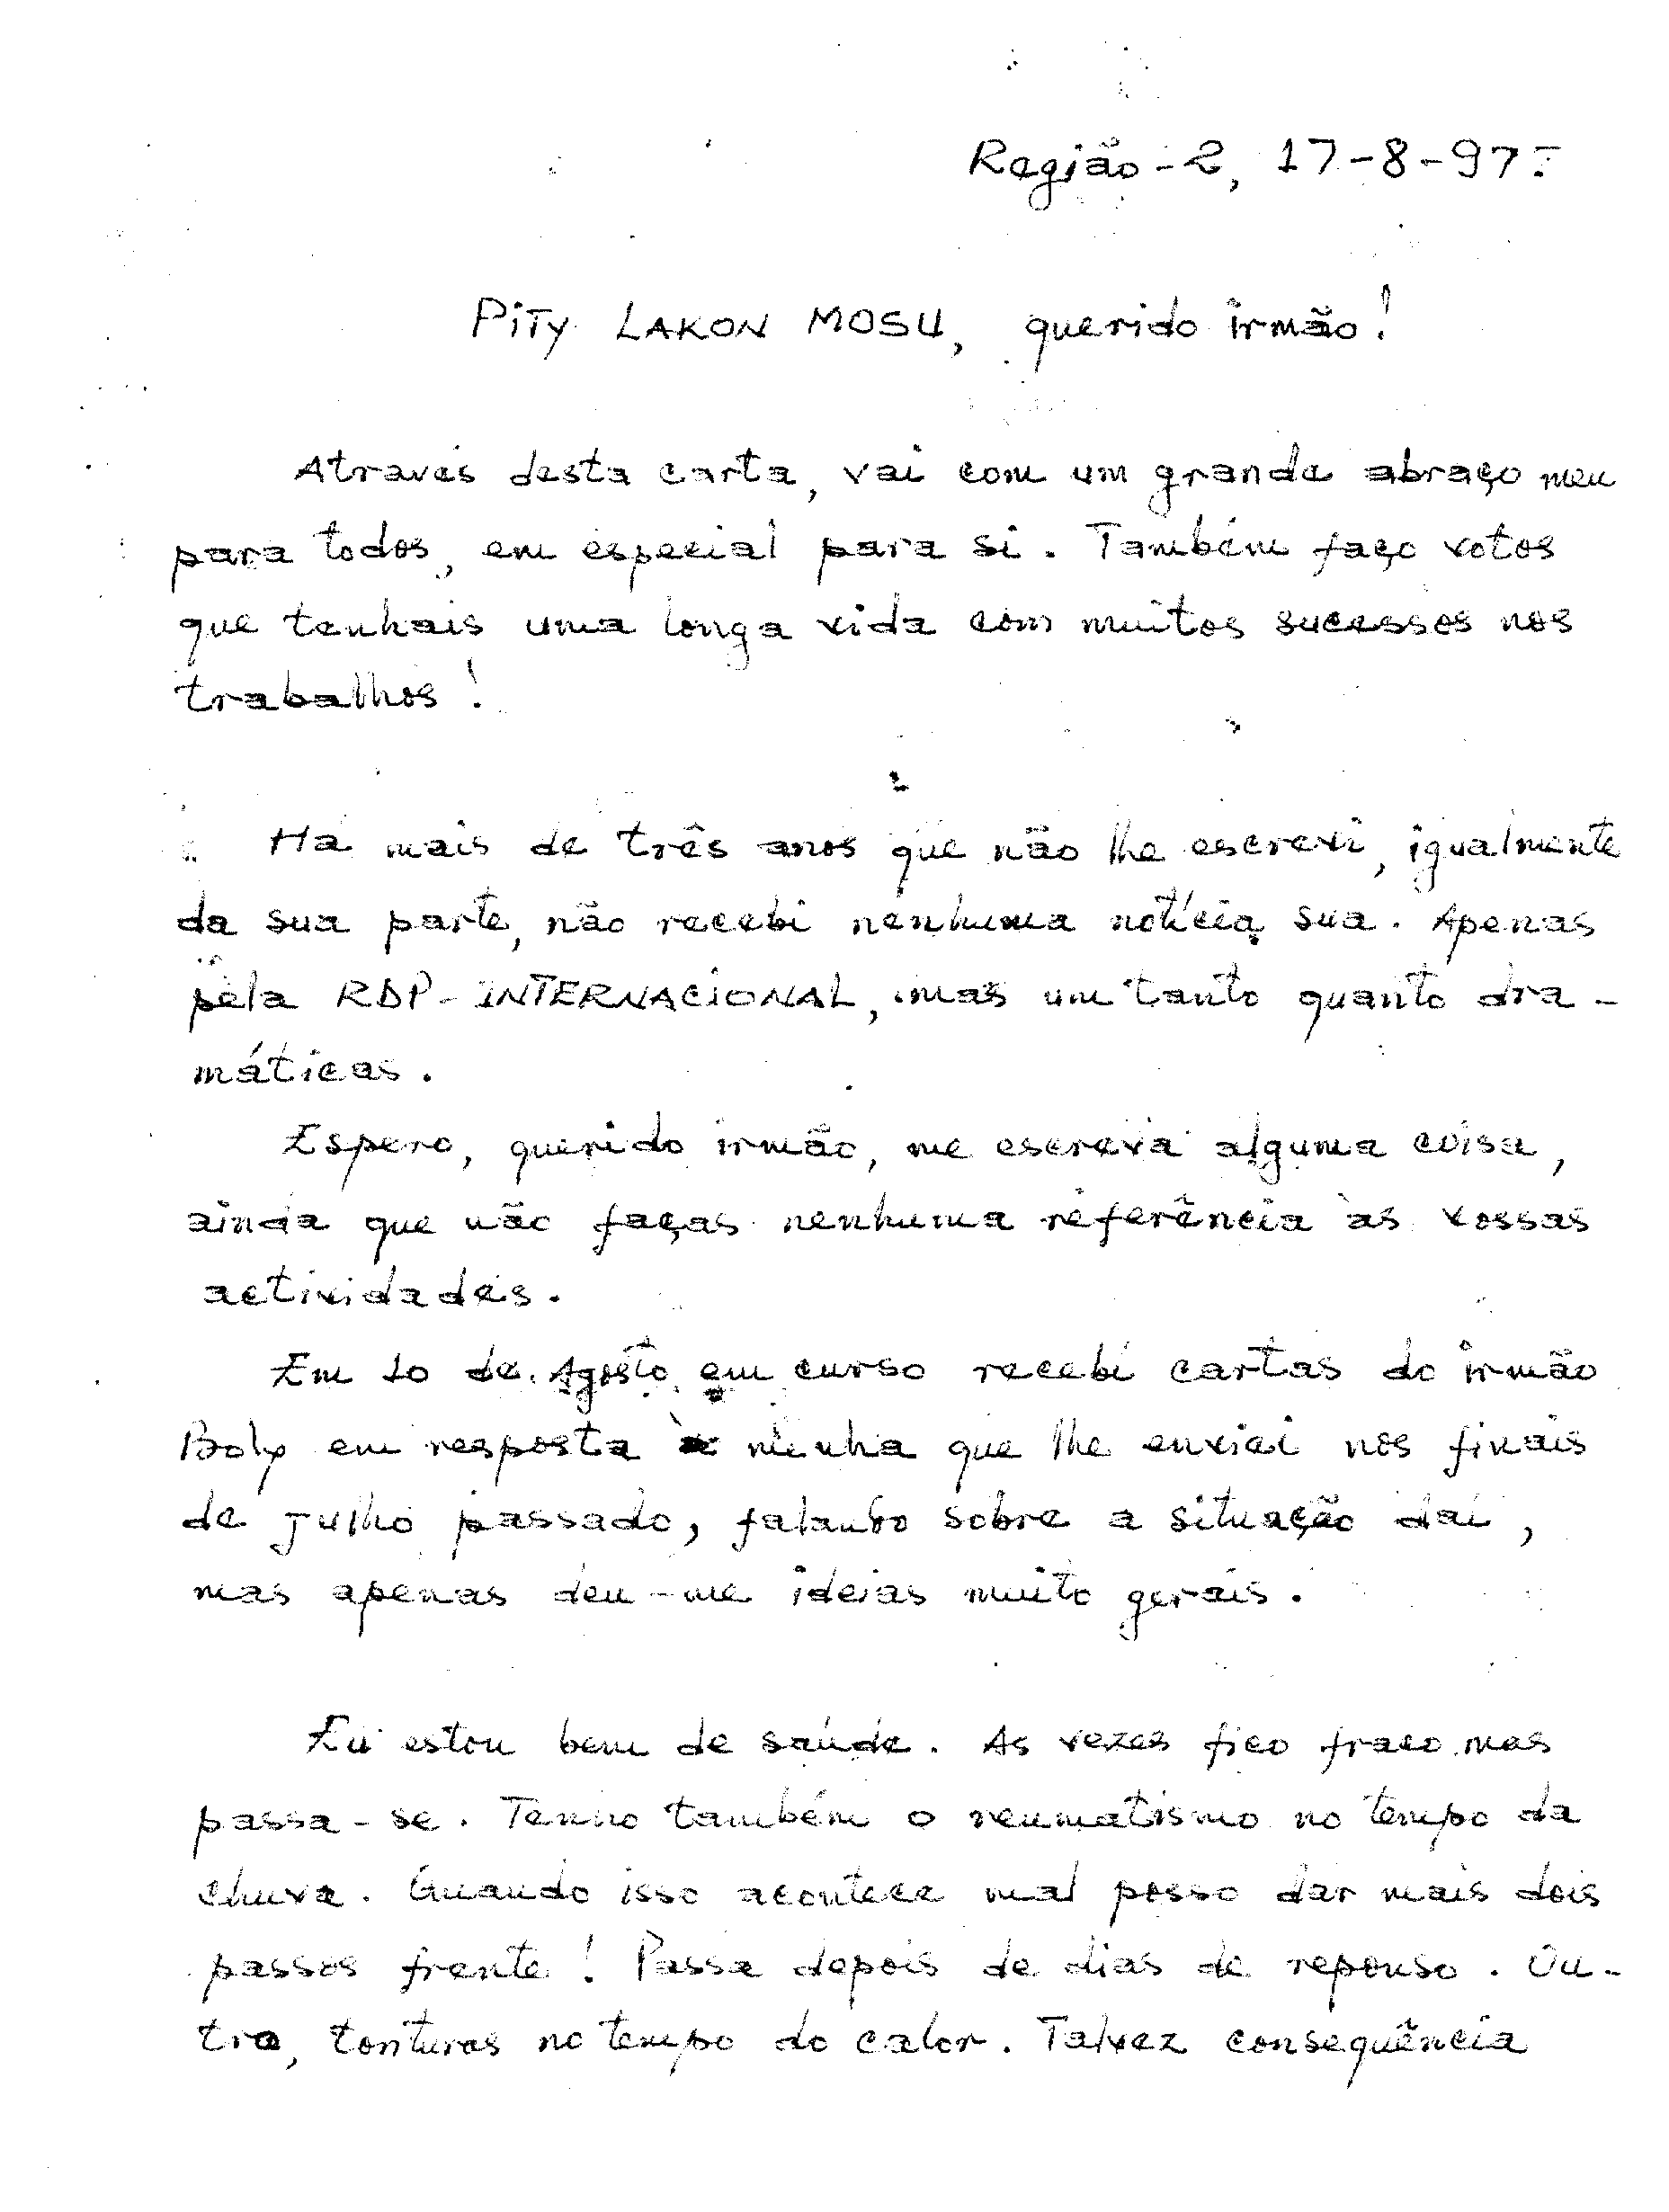 Região-2, 17-8-97.-
PiTy LAKON MOSU, querido irmão!
Através desta carta, vai com um grande abraço meu
para todos, em especial para si. Também faço votos
que tenhais uma longa vida com muitos sucessos nos
trabalhos!
Há mais de três anos que não lhe escrevi, igualmente
da sua parte, não recebi nenhuma notícia sua. Apenas
pela RDP-INTERNACIONAL, mas um tanto quanto dra-
máticas.
Espero, querido irmão, me escreva alguma coisa,
ainda que não faças nenhuma referência às vossas
actividades.
Em 10 de Agosto em curso recebi cartas do irmão
Boly em resposta à minha que lhe enviei nos finais
de Julho passado, falando sobre a situação daí,
mas apenas deu-me ideias muito gerais.
Eu estou bem de saúde. As vezes fico fraco mas
passa-se. Tenho também o reumatismo no tempo da
chuva. Quando isso acontece mal posso dar mais dois
passos frente! Passa depois de dias de repouso. Ou-
tra, tonturas no tempo do calor. Talvez consequência